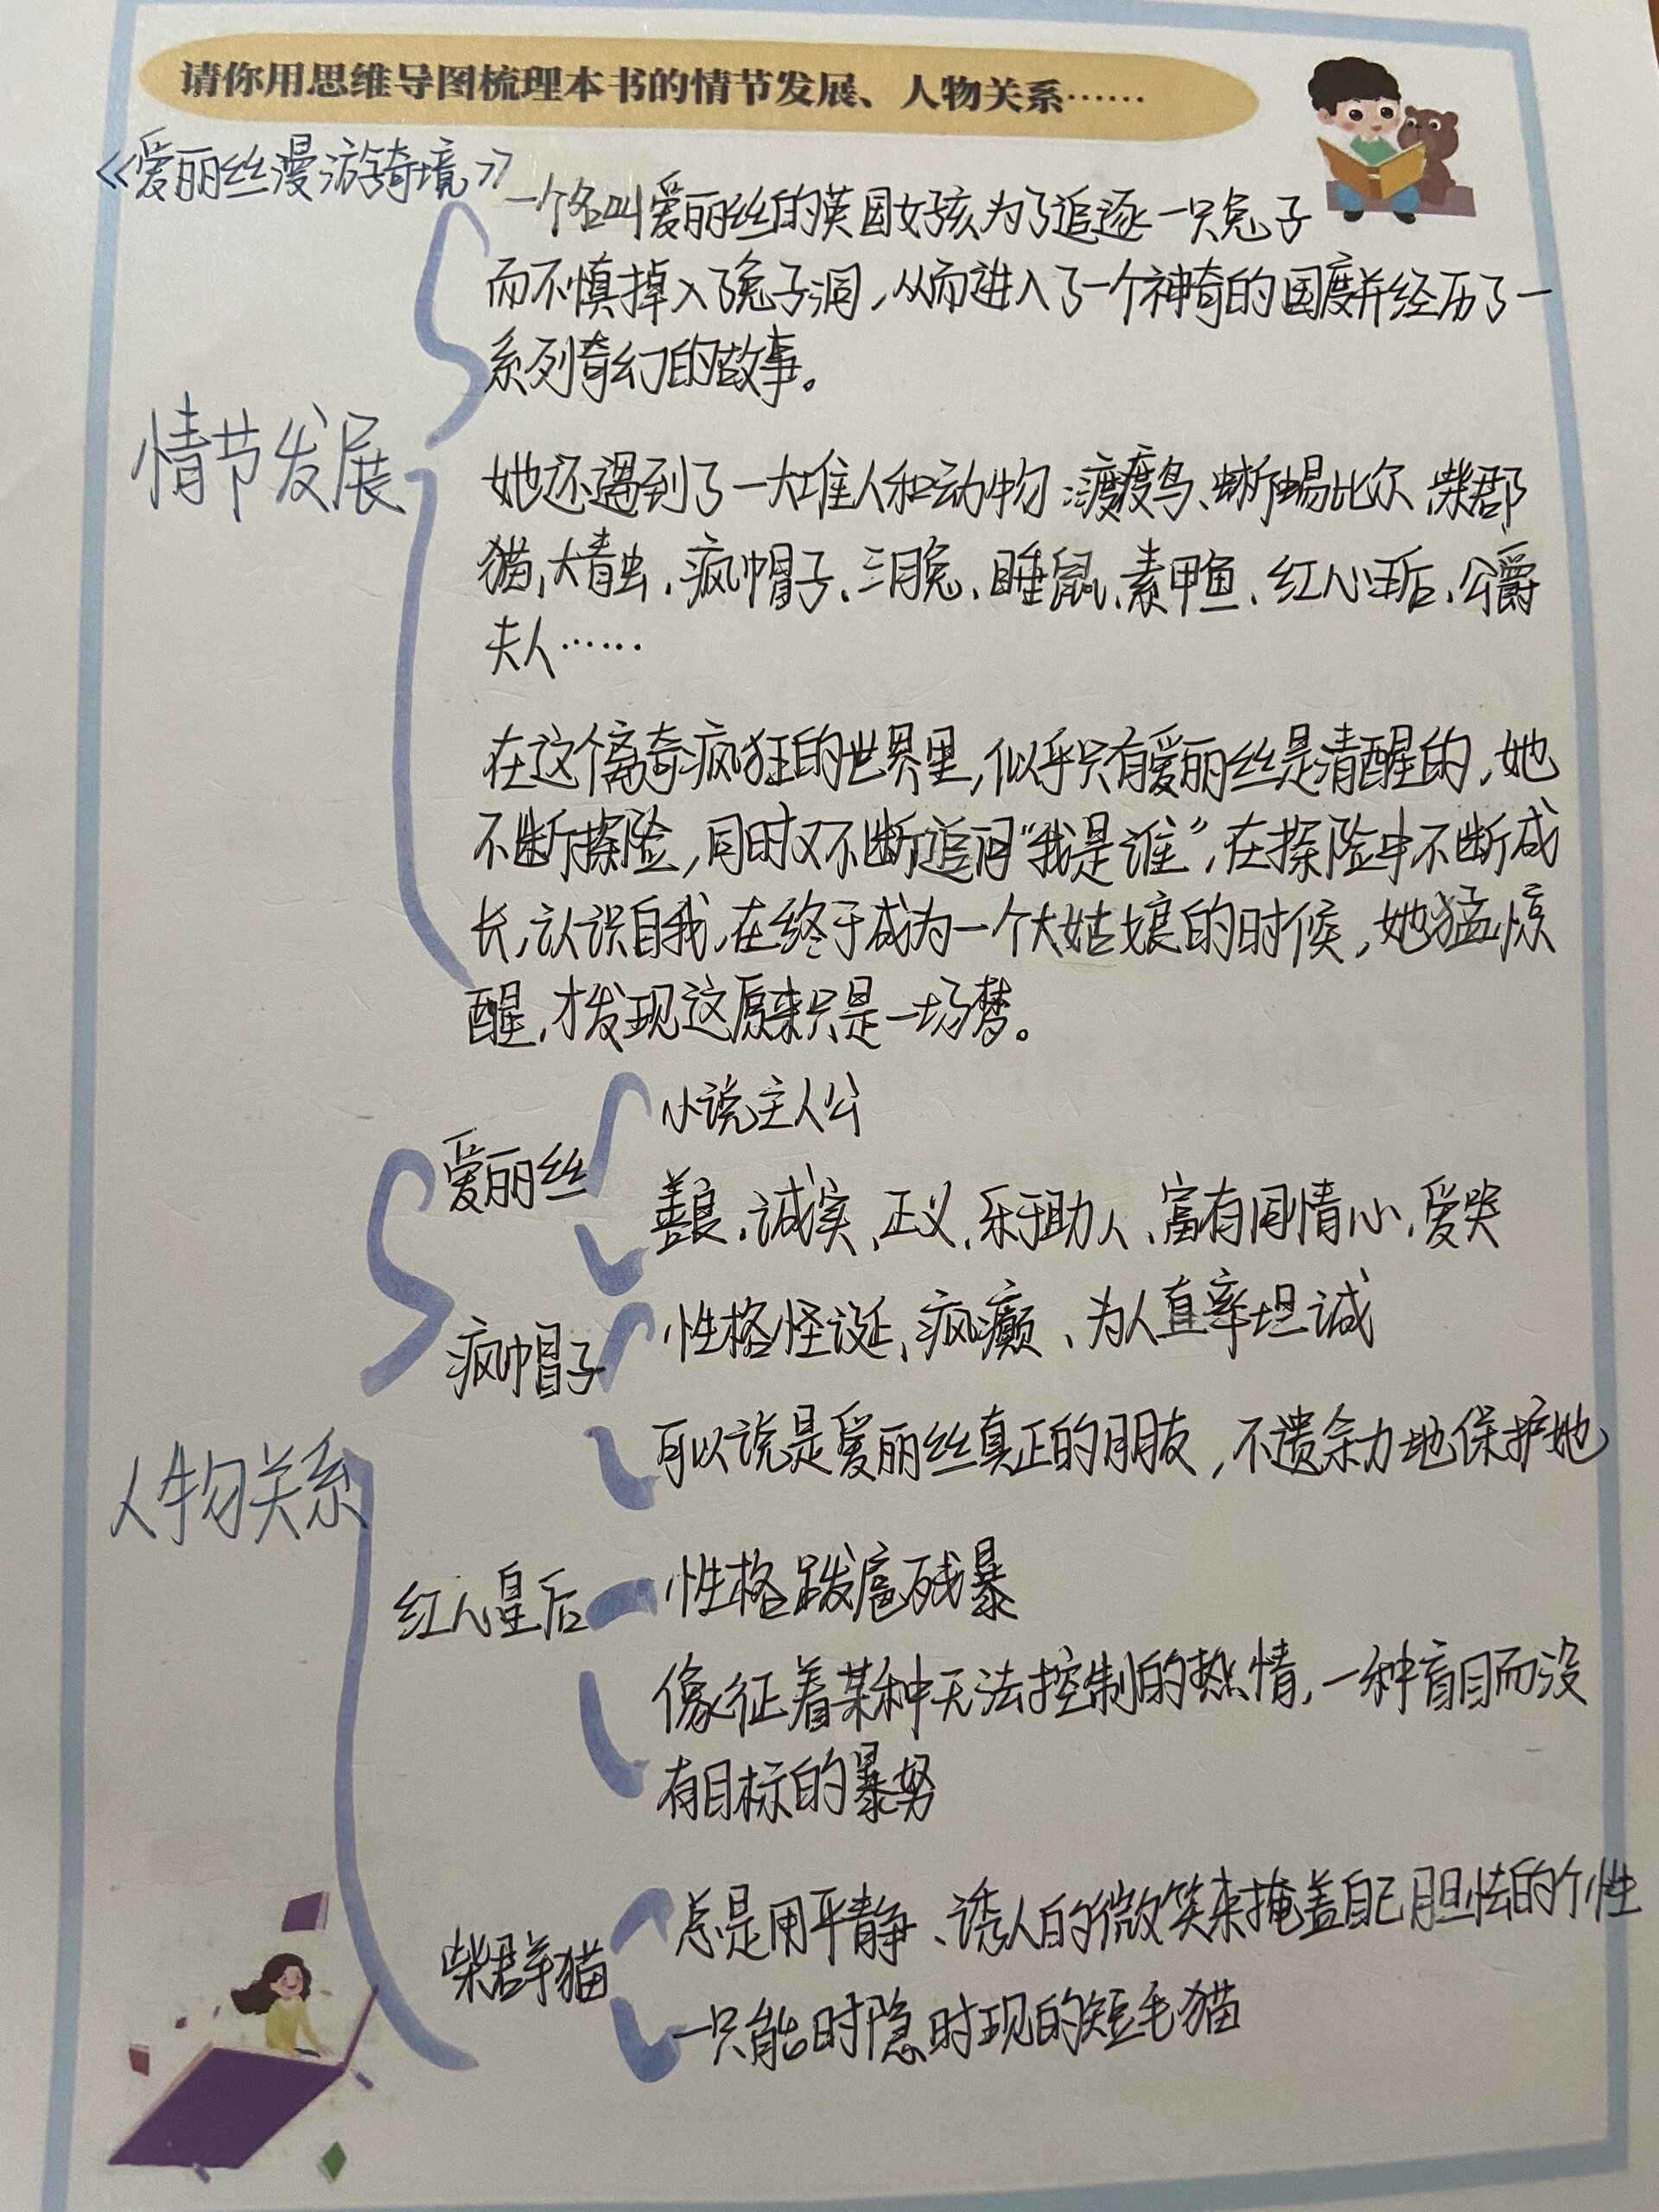 请你用思维导图梳理本书的情节发展、人物关系……
《爱丽丝漫游奇境》
一个名叫爱丽丝的英国女孩为了追逐一只兔子
而不慎掉入了兔子洞,从而进入了一个神奇的国度并经历了一
系列奇幻的故事。
情节发展
她还遇到了一大堆人和动物:渡渡鸟、蜥蜴比尔、柴郡
猫,大青虫,疯帽子、三月兔、睡鼠、素甲鱼、红心王后、公爵
夫人……
在这个离奇疯狂的世界里,似乎只有爱丽丝是清醒的,她
不断探险,同时又不断追问“我是谁”,在探险中不断成
长,认识自我,在终于成为一个大姑娘的时候,她猛惊
醒,才发现这原来只是一场梦。
小说主人公
爱丽丝
善良、诚实、正义、乐于助人、富有同情心,爱哭
性格怪诞、疯癫、为人直率坦诚
疯帽子
可以说是爱丽丝真正的朋友,不遗余力地保护她
人物关系
性格跋扈残暴
红心皇后
像征着某种无法控制的热情,一种盲目而没
有目标的暴努
总是用平静、诱人的微笑来掩盖自己胆怯的个性
柴群猫
一只能时隐时现的短毛猫